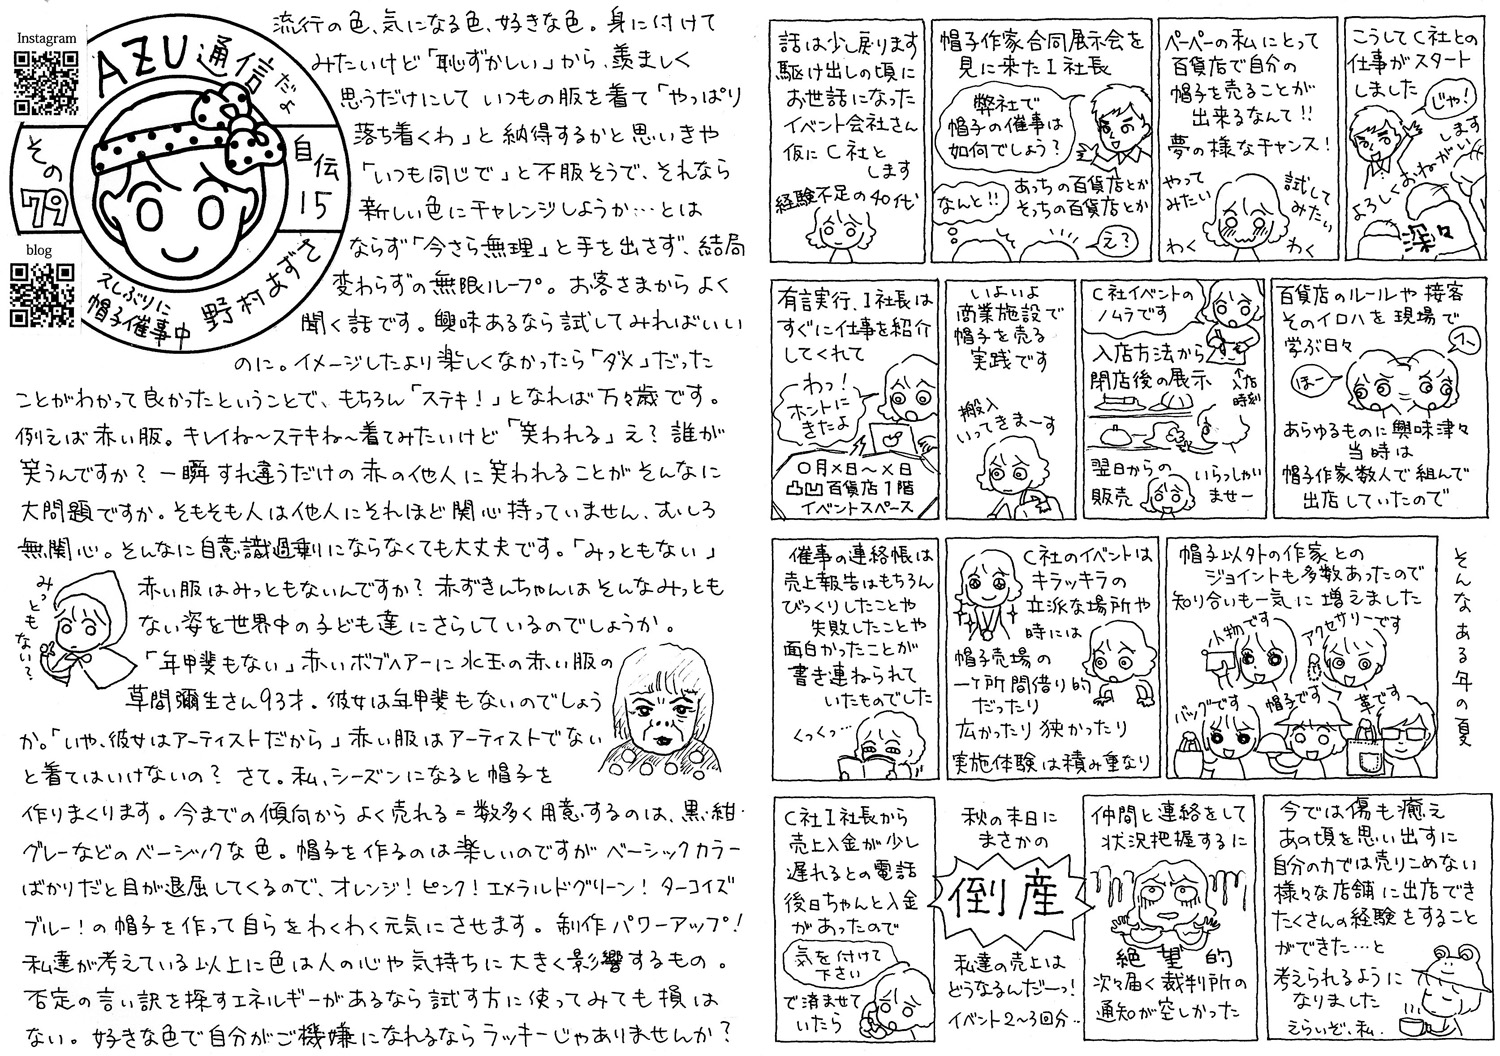 Instagram
blog
AZU通信だょ
その79
自伝15
久しぶりに
帽子催事中
野村あずさ
流行の色、気になる色、好きな色。身に付けて
みたいけど「恥ずかしい」から、羨ましく
思うだけにして いつもの服を着て「やっぱり
落ち着くわ」と納得するかと思いきや
「いつも同じで」と不服そうで、それなら
新しい色にチャレンジしようか…とは
ならず「今さら無理」と手を出さず、結局
変わらずの無限ループ。お客さまからよく
聞く話です。興味あるなら試してみればいい
のに。イメージしたより楽しくなかったら「ダメ」だった
ことがわかって良かったということで、もちろん「ステキ！」となれば万々歳です。
例えば赤い服。キレイね〜ステキね〜着てみたいけど「笑われる」え？誰が
笑うんですか？一瞬すれ違うだけの赤の他人に笑われることがそんなに
大問題ですか。そもそも人は他人にそれほど関心持っていません、むしろ
無関心。そんなに自意識過剰にならなくても大丈夫です。「みっともない」
赤い服はみっともないんですか？赤ずきんちゃんはそんなみっとも
ない姿を世界中の子ども達にさらしているのでしょうか。
みっともない？
「年甲斐もない」赤いボブヘアーに水玉の赤い服の
草間彌生さん93才。彼女は年甲斐もないのでしょう
か。「いや、彼女はアーティストだから」赤い服はアーティストでない
と着てはいけないの？さて。私、シーズンになると帽子を
作りまくります。今までの傾向からよく売れる＝数多く用意するのは、黒・紺・
グレーなどのベーシックな色。帽子を作るのは楽しいのですがベーシックカラー
ばかりだと目が退屈してくるので、オレンジ！ピンク！エメラルドグリーン！ターコイズ
ブルー！の帽子を作って自らをわくわく元気にさせます。制作パワーアップ！
私達が考えている以上に色は人の心や気持ちに大きく影響するもの。
否定の言い訳を探すエネルギーがあるなら試す方に使ってみても損は
ない。好きな色で自分がご機嫌になれるならラッキーじゃありませんか？
話は少し戻ります
駆け出しの頃に
お世話になった
イベント会社さん
仮にC社と
します
経験不足の40代
帽子作家合同展示会を
見に来たI社長
弊社で
帽子の催事は
如何でしょう？
なんと!!
あっちの百貨店とか
そっちの百貨店とか
え？
ペーペーの私にとって
百貨店で自分の
帽子を売ることが
出来るなんて!!
夢の様なチャンス！
やって
みたい
試して
みたい
わく
わく
こうしてC社との
仕事がスタート
しました
じゃ！
よろしくおねがいします
深々
有言実行、I社長は
すぐに仕事を紹介
してくれて
わっ！
ホントに
きたよ
〇月×日〜×日
凸凹百貨店1階
イベントスペース
いよいよ
商業施設で
帽子を売る
実践です
搬入
いってきまーす
C社イベントの
ノムラです
入店方法から
閉店後の展示
↑入店時刻
翌日からの
販売
いらっしゃい
ませー
百貨店のルールや接客
そのイロハを現場で
学ぶ日々
ほー
へー
あらゆるものに興味津々
当時は
帽子作家数人で組んで
出店していたので
催事の連絡帳は
売上報告はもちろん
びっくりしたことや
失敗したことや
面白かったことが
書き連ねられて
いたものでした
くっくっ…
C社のイベントは
キラッキラの
立派な場所や
時には
帽子売場の
一ヶ所間借り的
だったり
広かったり狭かったり
実施体験は積み重なり
帽子以外の作家との
ジョイントも多数あったので
知り合いも一気に増えました
小物です
アクセサリーです
バッグです
帽子です
革です
そんなある年の夏
C社I社長から
売上入金が少し
遅れるとの電話
後日ちゃんと入金
があったので
気を付けて
下さい
で済ませて
いたら
秋の末日に
まさかの
倒産
私達の売上は
どうなるんだーっ！
イベント2〜3回分…
仲間と連絡をして
状況把握するに
絶望的
次々届く裁判所の
通知が空しかった
今では傷も癒え
あの頃を思い出すに
自分の力では売りこめない
様々な店舗に出店でき
たくさんの経験をすること
ができた…と
考えられるように
なりました
えらいぞ、私.